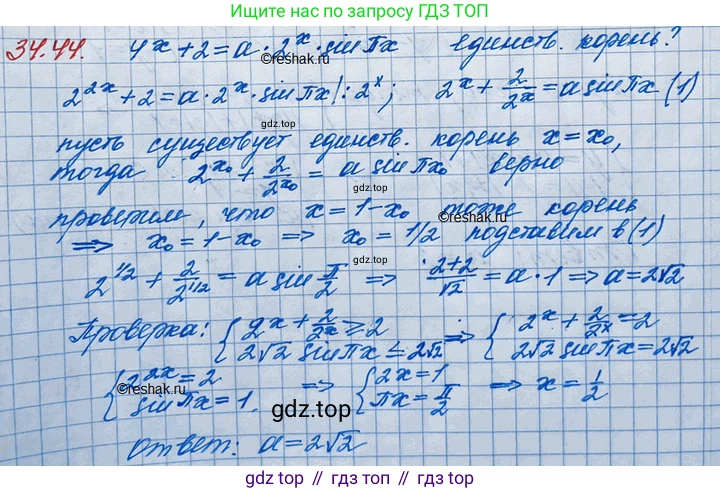 Ищите ответы по запросу ГДЗ ТОП
34.44. 4^x + 2 = a · 2^x · sin πx единств. корень?
©reshak.ru
2^{2x} + 2 = a · 2^x · sin πx | : 2^x; 2^x + 2/2^x = a sin πx (1)
gdz.top
пусть существует единств. корень x = x₀,
тогда 2^{x₀} + 2/2^{x₀} = a sin πx₀ верно
проверим, что x = 1 - x₀ тоже корень
©reshak.ru
⇒ x₀ = 1 - x₀ ⇒ x₀ = 1/2 подставим в (1)
gdz.top
2^{1/2} + 2/2^{1/2} = a sin π/2 ⇒ (2+2)/√2 = a · 1 ⇒ a = 2√2
Проверка: { 2^x + 2/2^x ≥ 2 ⇒ { 2^x + 2/2^x = 2
2√2 sin πx ≤ 2√2 2√2 sin πx = 2√2
{ 2^{2x} = 2 ⇒ { 2x = 1 ⇒ x = 1/2
©reshak.ru
sin πx = 1. πx = π/2
gdz.top
ответ: a = 2√2
gdz.top // gdz.top // gdz.top // gdz.top